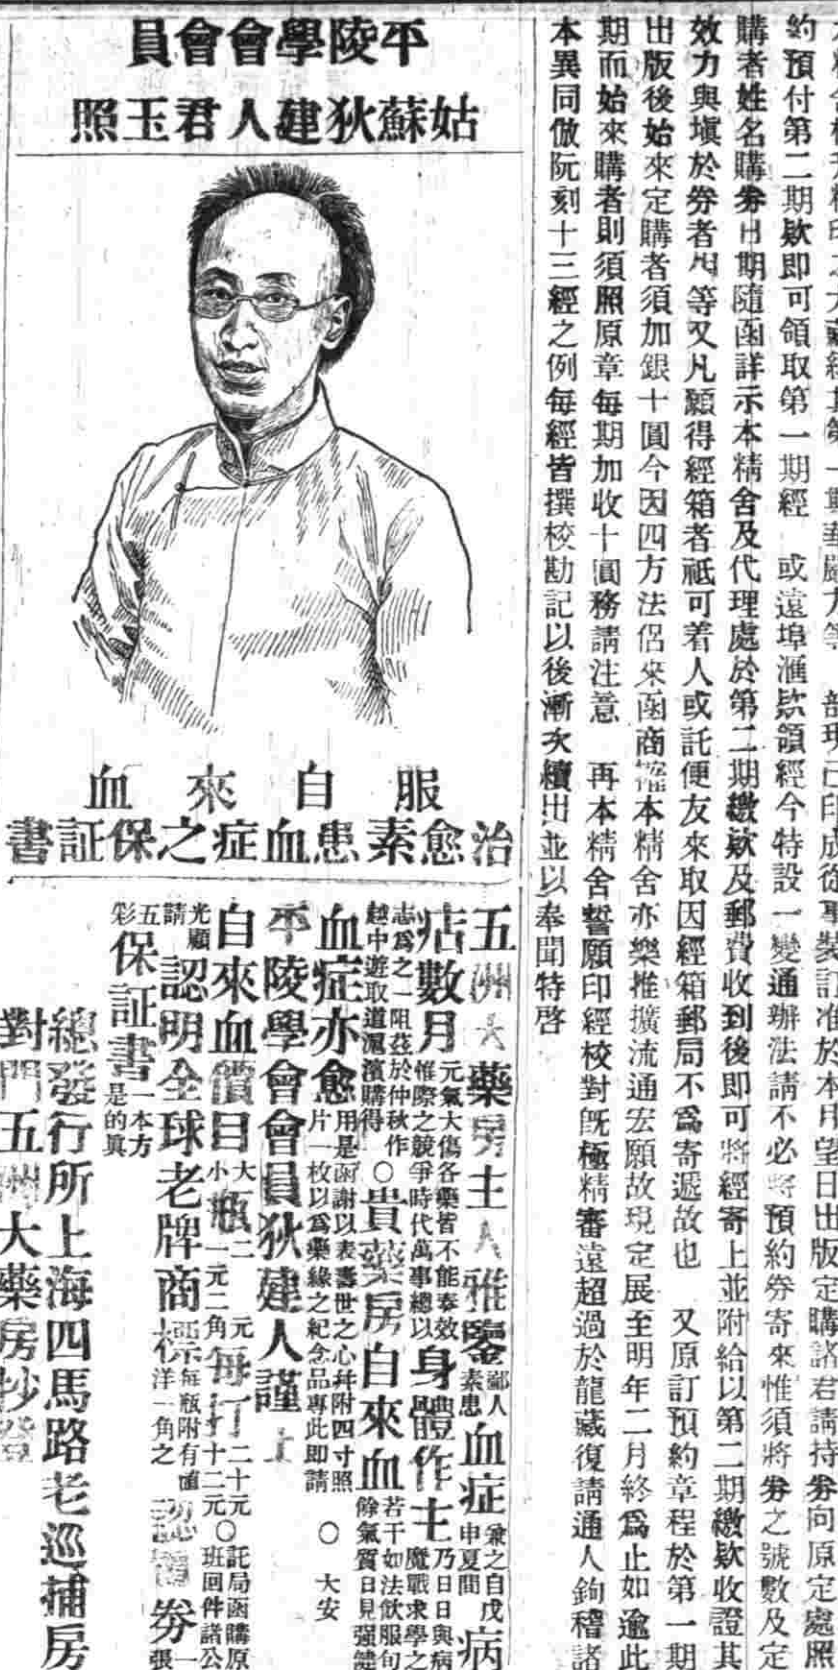 裝訂准於本月望日出版定購諸君請持劵向原定處照
約預付第二期欵即可領取第一期經　或遠埠滙欵領經今特設一變通辦法請不必將預約劵寄來惟須將劵之號數及定
購者姓名購劵日期隨函詳示本精舍及代理處於第二期繳欵及郵費收到後即可將經寄上並附給以第二期繳欵收證其
效力與塡於劵者相等又凡願得經箱者祗可着人或託便友來取因經箱郵局不爲寄遞故也　又原訂預約章程於第一期
出版後始來定購者須加銀十圓今因四方法侶來函商榷本精舍亦樂推擴流通宏願故現定展至明年二月終爲止如逾此
期而始來購者則須照原章每期加收十圓務請注意　再本精舍誓願印經校對旣極精審遠超過於龍藏復請通人鉤稽諸
本異同倣阮刻十三經之例每經皆撰校勘記以後漸次續出並以奉聞特啓
平陵學會會員
姑蘇狄建人君玉照
服自來血
治愈素患血症之保証書
五洲大藥房主人雅鑒鄙人素患血症兼之自戊申夏間病
痁數月元氣大傷各藥皆不能奏效惟際之競爭時代萬事總以身體作主乃日日與病魔戰求學之
志爲之一阻茲於仲秋作越中遊取道滬濱購得○貴藥房自來血若干如法飲服旬餘氣質日見强健
血症亦愈用是函謝以表壽世之心幷附四寸照片一枚以爲藥緣之紀念品專此即請○大安
平陵學會會員狄建人謹上
自來血價目大瓶二元小瓶一元二角每打二十元十二元○託局函購原班回件諸公
光顧請認明全球老牌商標每瓶附有值洋一角之劵一張
五彩保証書一本方是的眞
總發行所上海四馬路老巡捕房
對門五洲大藥房抄登